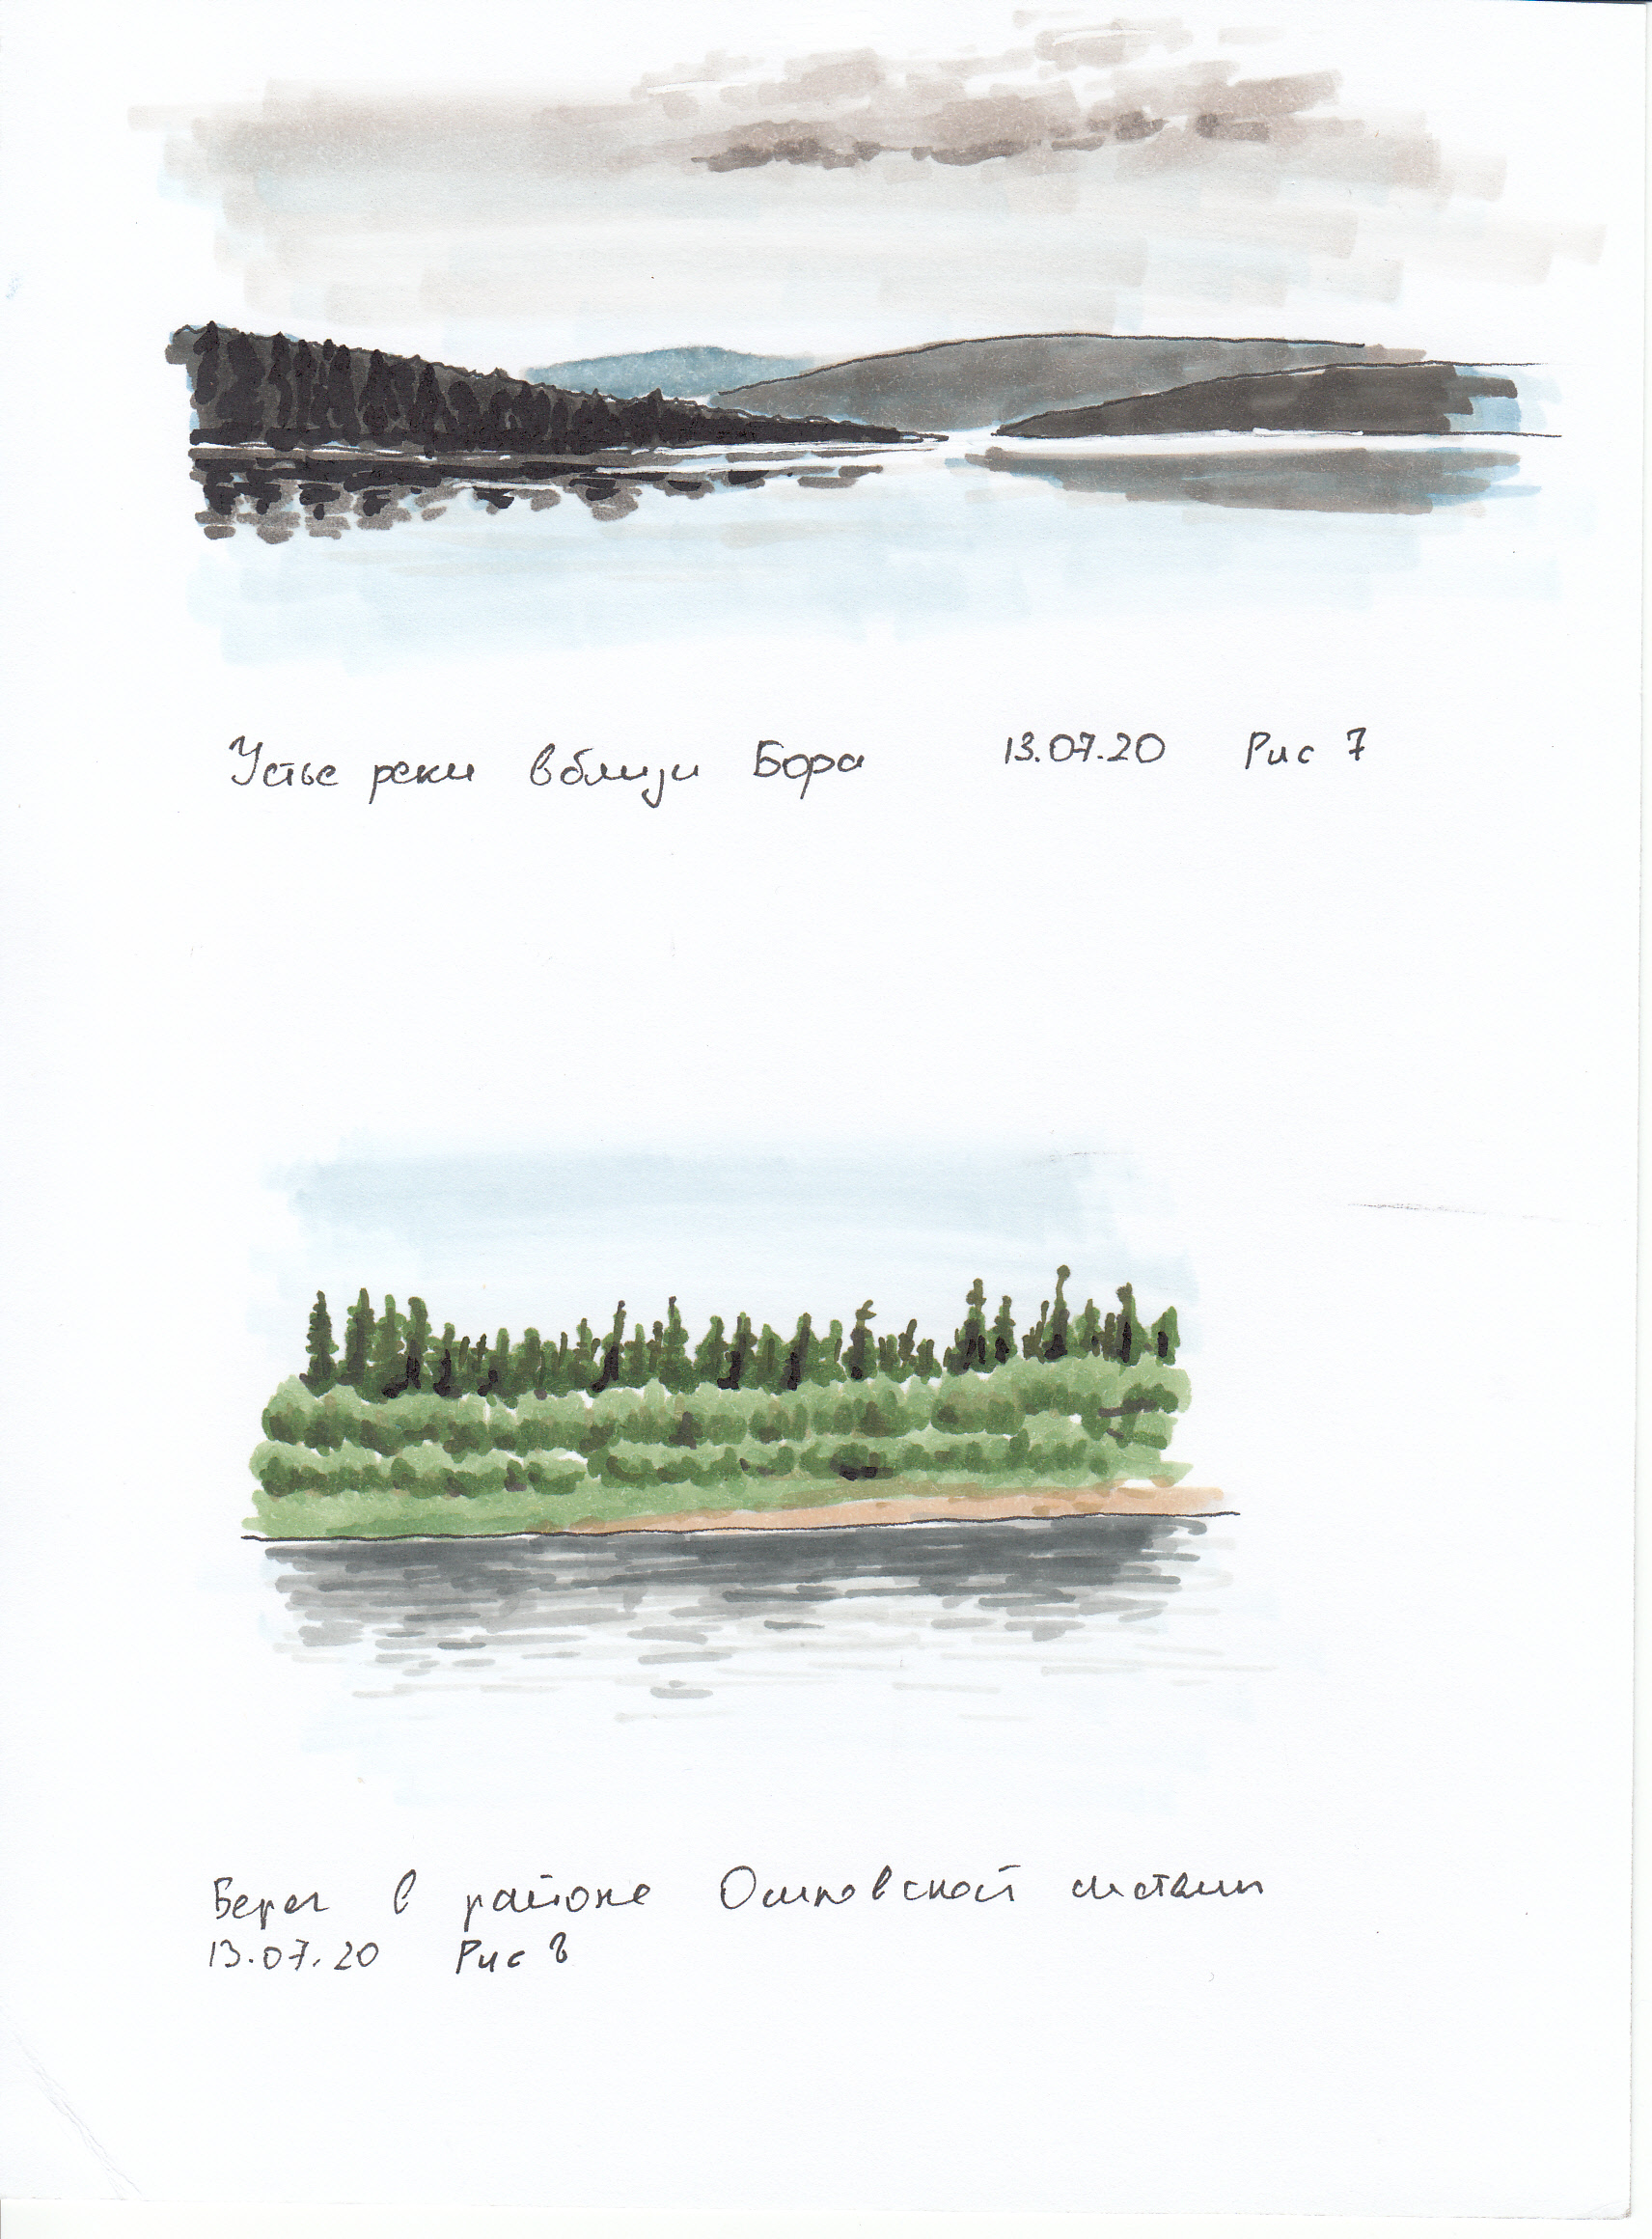 Устье реки вблизи Бора 13.07.20 Рис 7
Берег в районе Осиновской
13.07.20 Рис 8